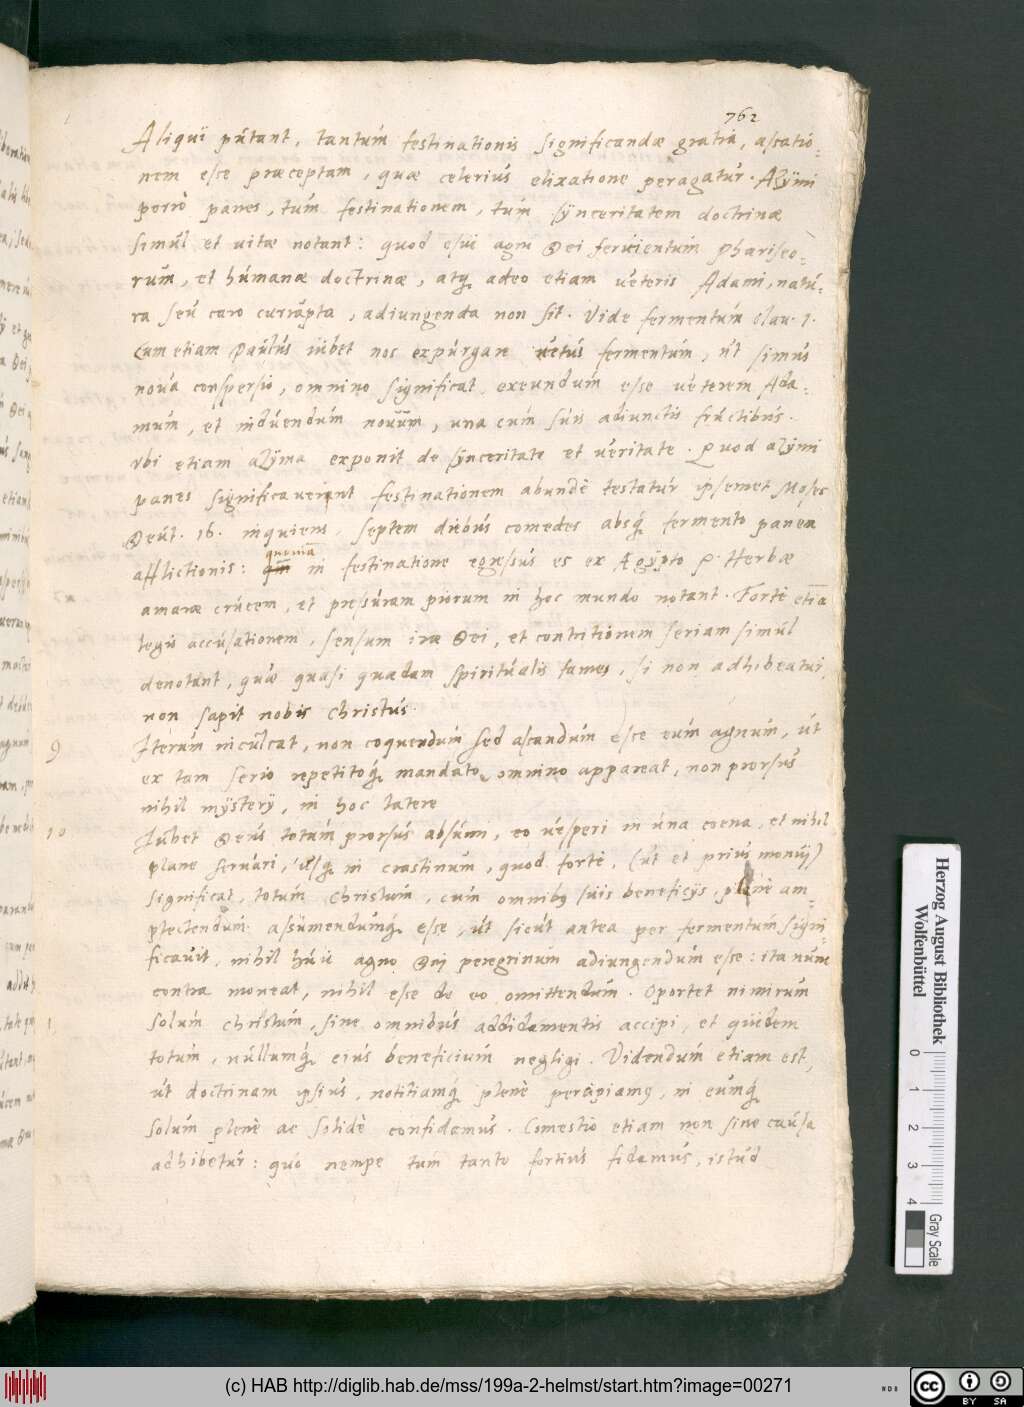 762
Aliqui putant, tantum festinationis significandæ gratia, assatio=
nem esse præceptam, quæ celerius elixatione peragatur. Azÿmi
porrò panes, tum festinationem, tum sÿnceritatem doctrinæ
simul et vitæ notant: quod esui agni Dei
rum, et humanæ doctrinæ, atq; adeo etiam veteris Adami, natu=
ra seu caro corrupta, adiungenda non sit. Vide fermentum clau. 1.
Cum etiam Paulus iubet nos expurgare vetus fermentum, ut simus
nova conspersio, omnino significat, exeundum esse veterem Ada=
mum, et induendum novum, una cum suis adiunctis fructibus.
Vbi etiam azÿma exponit de sÿnceritate et veritate. Quod azÿmi
panes significaverint festinationem abundè testatur ipsemet Moses
Deut. 16. inquiens. Septem diebus comedes absq; fermento panem
quoniā
afflictionis: in festinatione egressus es ex Ægypto &. Herbæ
amaræ crucem, et pressuram piorum in hoc mundo notant. Fortè etiā
legis accusationem, sensum iræ Dei, et contritionem seriam simul
denotant, quæ quasi quædam spiritualis fames, si non adhibeatur,
non sapit nobis Christus.
9 Iterum inculcat, non coquendum sed assandum esse eum agnum, ut
ex tam serio repetitoq; mandato, omnino appareat, non prorsus
nihil mÿsterÿ, in hoc latere
10 Iubet Deus totum prorsus absumi, eo vesperi in una coena, et nihil
plane servari, usq; in crastinum, quod fortè, (ut et prius monui)
significat, totum Christum, cum omnibus suis beneficÿs, plenè am=
plectendum assumendumq; esse, ut sicut antea per fermentum signi=
ficavit, nihil huic agno Dei peregrinum adiungendum esse: ita nunc
contra moneat, nihil esse de eo omittendum. Oportet nimirum
solum Christum, sine omnibus additamentis accipi, et quidem
totum, nullumq; eius beneficium negligi. Videndum etiam est,
ut doctrinam ipsius, notitiamq; plenè percipiamus, in eumq;
solum plenè ac solidè confidamus. Comestio etiam non sine causa
adhibetur: quo nempe tum tanto fortius fidamus, istud
Herzog August Bibliothek
Wolfenbüttel
0 1 2 3 4
Gray Scale
(c) HAB http://diglib.hab.de/mss/199a-2-helmst/start.htm?image=00271
cc BY SA